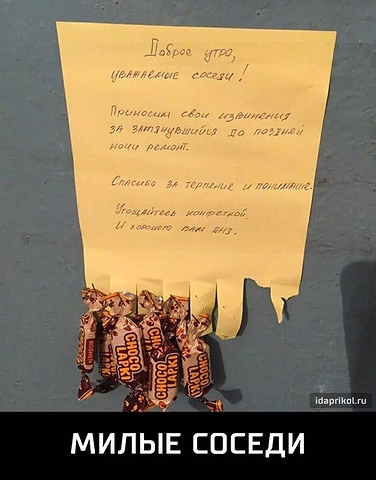 Доброе утро,
уважаемые соседи!
Приносим свои извинения
за затянувшийся до поздней
ночи ремонт.
Спасибо за терпение и понимание.
Угощайтесь конфеткой.
И хорошего вам дня.
CHOCO
LAPKI
CHOCO
LAPKI
idaprikol.ru
МИЛЫЕ СОСЕДИ